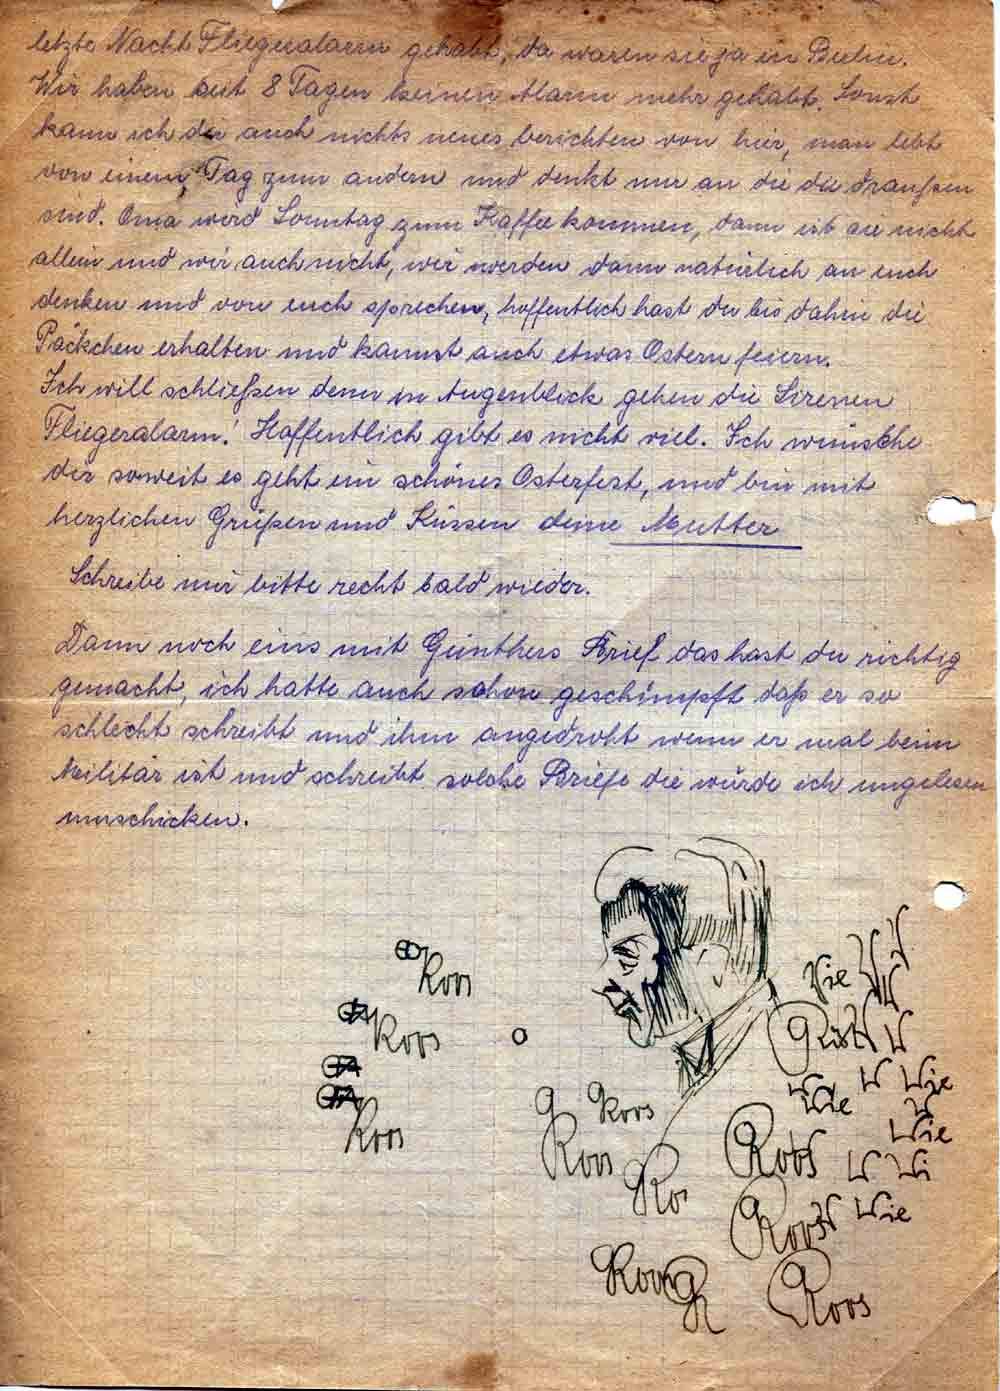 letzte Nacht Fliegeralarm gehabt, da waren sie ja in Berlin.
Wir haben seit 8 Tagen keinen Alarm mehr gehabt. Sonst
kann ich dir auch nichts neues berichten von hier, man lebt
von einem Tag zum andern und denkt nur an die die draußen
sind. Oma wird Sonntag zum Kaffee kommen, dann ist sie nicht
allein und wir auch nicht, wir werden dann natürlich an euch
denken und von euch sprechen, hoffentlich hast du bis dahin die
Päckchen erhalten und kannst auch etwas Ostern feiern.
Ich will schließen denn im Augenblick gehen die Sirenen
Fliegeralarm! Hoffentlich gibt es nicht viel. Ich wünsche
dir soweit es geht ein schönes Osterfest, und bin mit
herzlichen Grüßen und Küssen deine Mutter
Schreibe mir bitte recht bald wieder.
Dann noch eins mit Günthers Brief das hast du richtig
gemacht, ich hatte auch schon geschimpft daß er so
schlecht schreibt und ihm angedroht wenn er mal beim
Militär ist und schreibt solche Briefe die würde ich ungelesen
umschicken.
Roos
Wie W
Roos
W
W Wie
Wie
G Roos
Roos
Wie
Roos
Roos
W Wi
Ro
Roos
Wie
Roos
R
Roos